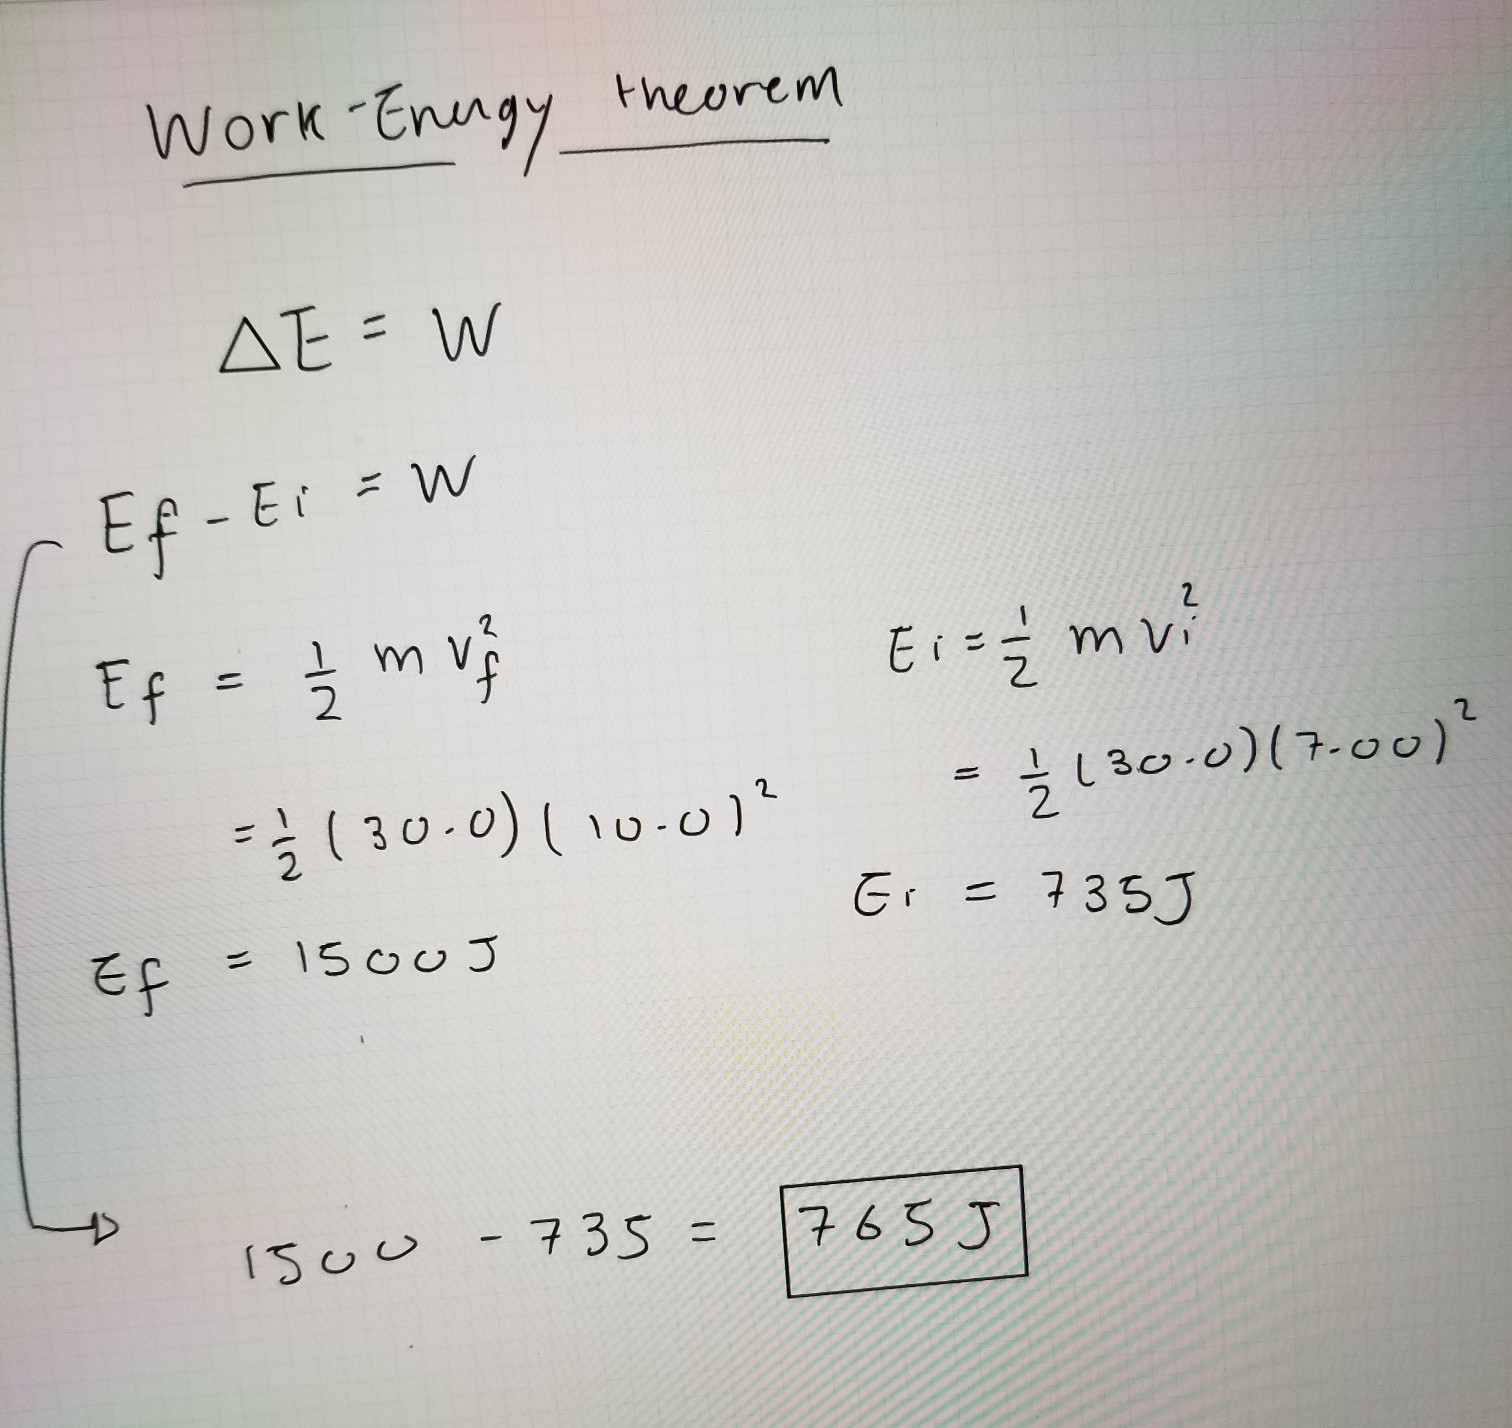 Work-Energy theorem
ΔE = W
Ef - Ei = W
Ef = 1/2 m vf²
= 1/2 (30.0)(10.0)²
Ef = 1500J
Ei = 1/2 m vi²
= 1/2 (30.0)(7.00)²
Ei = 735J
1500 - 735 = 765J